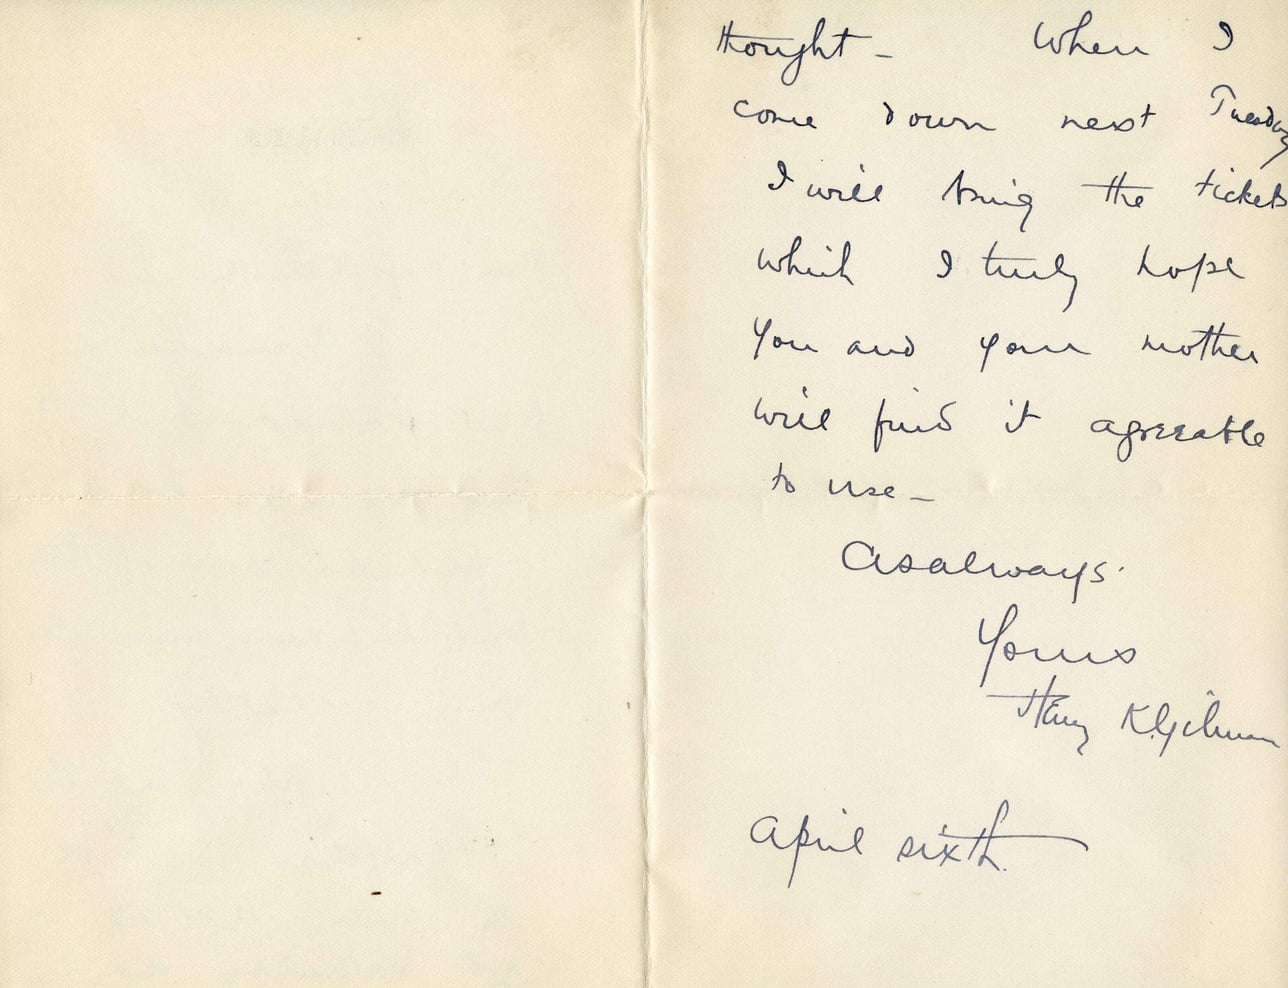 thought – When I
come down next Tuesday
I will bring the tickets
which I truly hope
you and your mother
will find it agreeable
to use –
As always
Yours
Harry K. Gilman
April sixth.